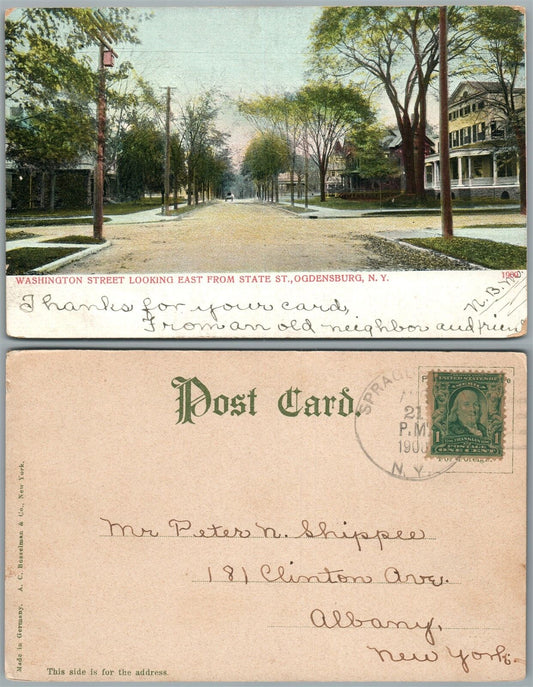 WASHINGTON STREET LOOKING EAST FROM STATE ST., OGDENSBURG, N. Y.
Thanks for your card,
From an old neighbor and frien
Post Card.
21
P.M.
190
N.Y.
UNITED STATES
1 1
ONE CENT
Mr Peter N. Shippee
181 Clinton Ave.
Albany,
New York.
Made in Germany. A. C. Bosselman & Co., New York.
This side is for the address.